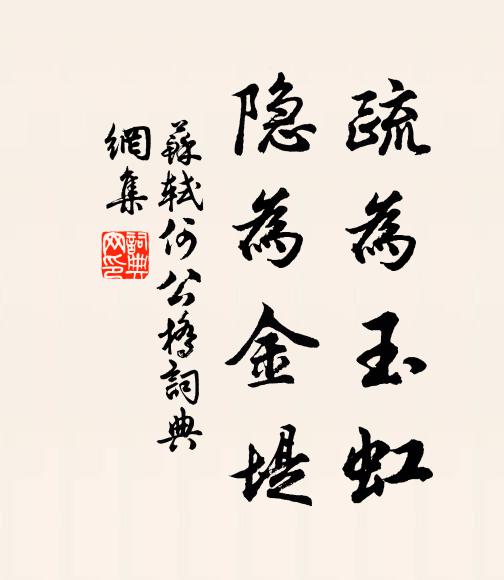 疏為玉虹
隐為金堤
蘇軾何公橋詞典
網集
詞典
网印